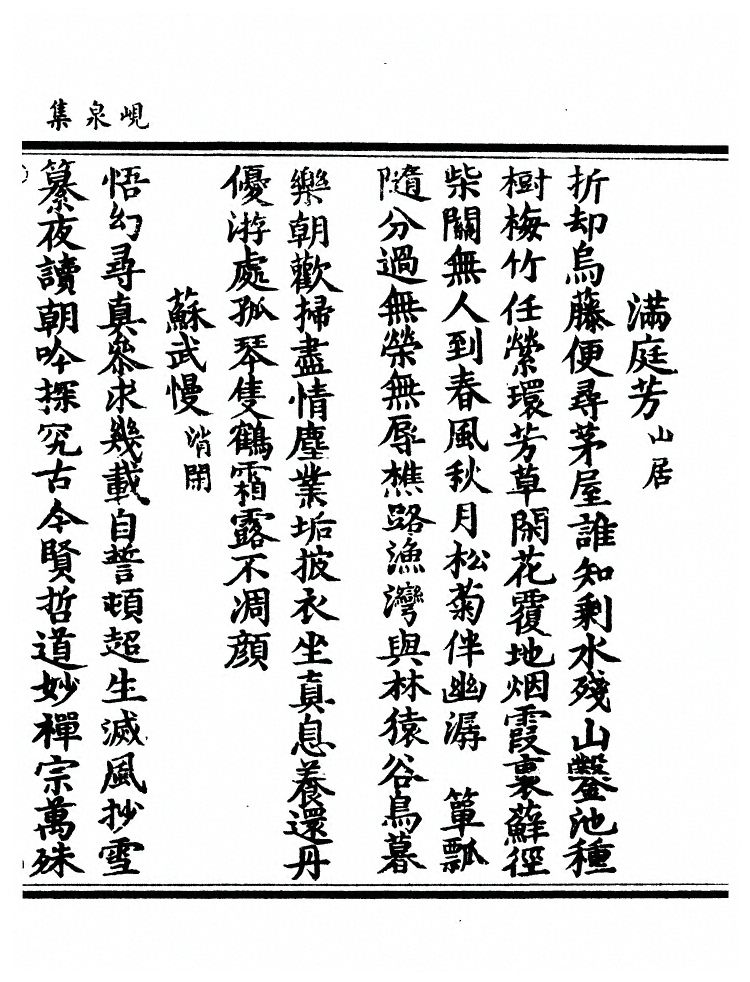 峴泉集
滿庭芳 山居
折却烏藤便尋茅屋誰知剩水殘山鑿池種
樹梅竹任縈環芳草閑花覆地烟霞裏蘚徑
柴關無人到春風秋月松菊伴幽潺　簞瓢
隨分過無榮無辱樵路漁灣與林猿谷鳥暮
樂朝歡掃盡情塵業垢披衣坐真息養還丹
優游處孤琴隻鶴霜露不凋顔
蘇武慢 消閑
悟幻尋真參求幾載自誓頓超生滅風抄雪
纂夜讀朝吟探究古今賢哲道妙禪宗萬殊